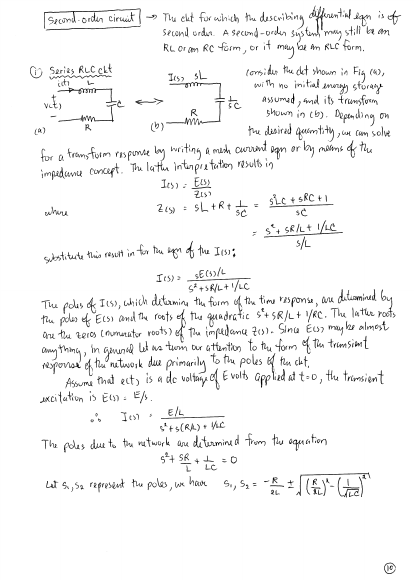 Second-order circuit → The ckt for which the describing differential eqn is of
second order. A second-order system may still be an
RL or an RC form, or it may be an RLC form.
(i) Series RLC ckt
i(t) L
v(t)
C
R
(a)
I(s) sL
1/sC
R
(b)
Consider the ckt shown in Fig (a),
with no initial energy storage
assumed, and its transform
shown in (b). Depending on
the desired quantity, we can solve
for a transform response by writing a mesh current eqn or by means of the
impedance concept. The latter interpretation results in
I(s) = E(s)/Z(s)
where Z(s) = sL + R + 1/sC = (s²LC + sRC + 1)/sC
= (s² + sR/L + 1/LC)/(s/L)
substitute this result in for the eqn of the I(s):
I(s) = (sE(s)/L)/(s² + sR/L + 1/LC)
The poles of I(s), which determine the form of the time response, are determined by
the poles of E(s) and the roots of the quadratic s² + sR/L + 1/RC. The latter roots
are the zeros (numerator roots) of the impedance Z(s). Since E(s) may be almost
anything, in general let us turn our attention to the form of the transient
response of the network due primarily to the poles of the ckt.
Assume that e(t) is a dc voltage of E volts applied at t=0, the transient
excitation is E(s) = E/s.
∴ I(s) = (E/L)/(s² + s(R/L) + 1/LC)
The poles due to the network are determined from the equation
s² + sR/L + 1/LC = 0
Let s₁, s₂ represent the poles, we have s₁, s₂ = -R/2L ± √((R/2L)² - (1/√LC)²)
10